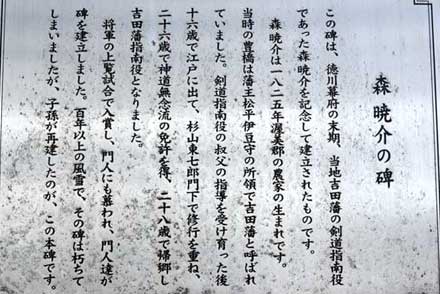 森曉介の碑
この碑は、徳川幕府の末期、当地吉田藩の剣道指南役
であった森曉介を記念して建立されたものです。
森曉介は一八二五年渥美郡の農家の生まれです。
当時の豊橋は藩主松平伊豆守の所領で吉田藩と呼ばれ
ていました。剣道指南役の叔父の指導を受け育った後
十六歳で江戸に出て、杉山東七郎門下で修行を重ね、
二十六歳で神道無念流の免許を得、二十八歳で帰郷し
吉田藩指南役となりました。
将軍の上覧試合で入賞し、門人にも慕われ、門人達が
碑を建立しました。百年以上の風雪で、その碑は朽ちて
しまいましたが、子孫が再建したのが、この本碑です。